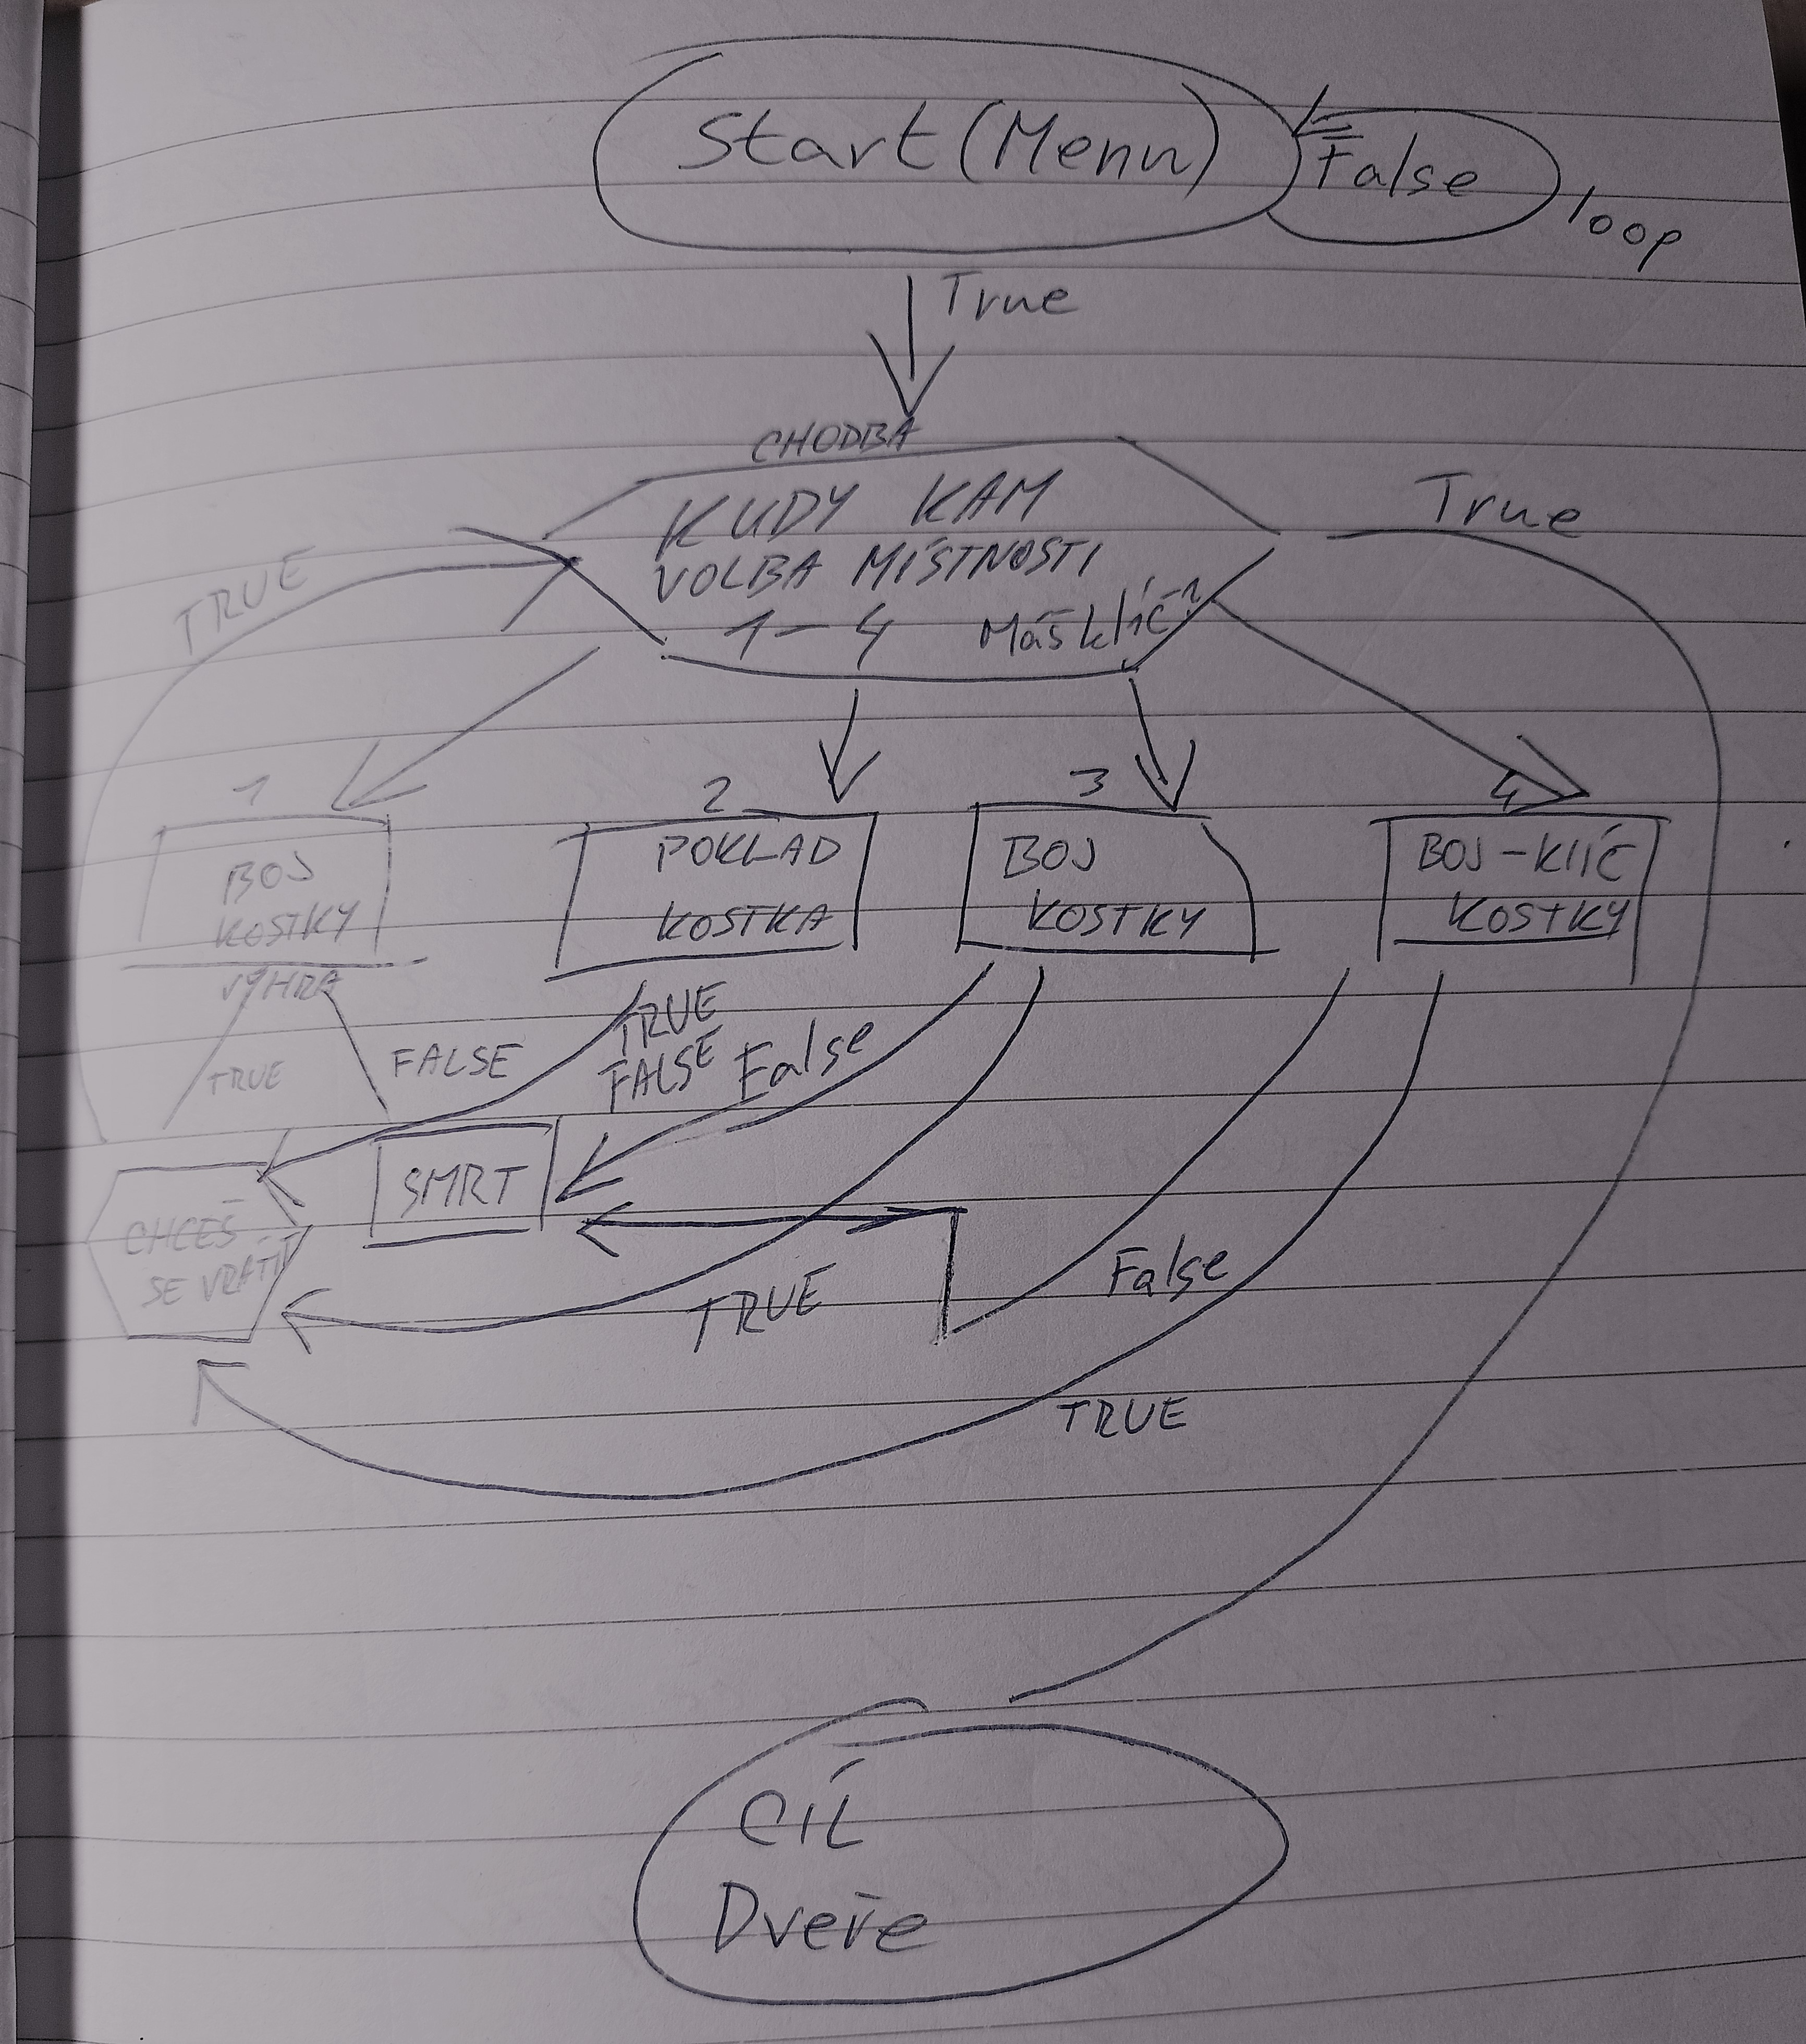 Start (Menu)
False
loop
True
CHODBA
KUDY KAM
VOLBA MÍSTNOSTI
1-4 Máš klíč?
True
TRUE
1
BOJ
KOSTKY
VÝHRA
2
POKLAD
KOSTKA
3
BOJ
KOSTKY
4
BOJ-KLÍČ
KOSTKY
TRUE
FALSE
TRUE
FALSE
False
SMRT
CHCEŠ
SE VRÁTIT
TRUE
False
TRUE
CÍL
Dveře